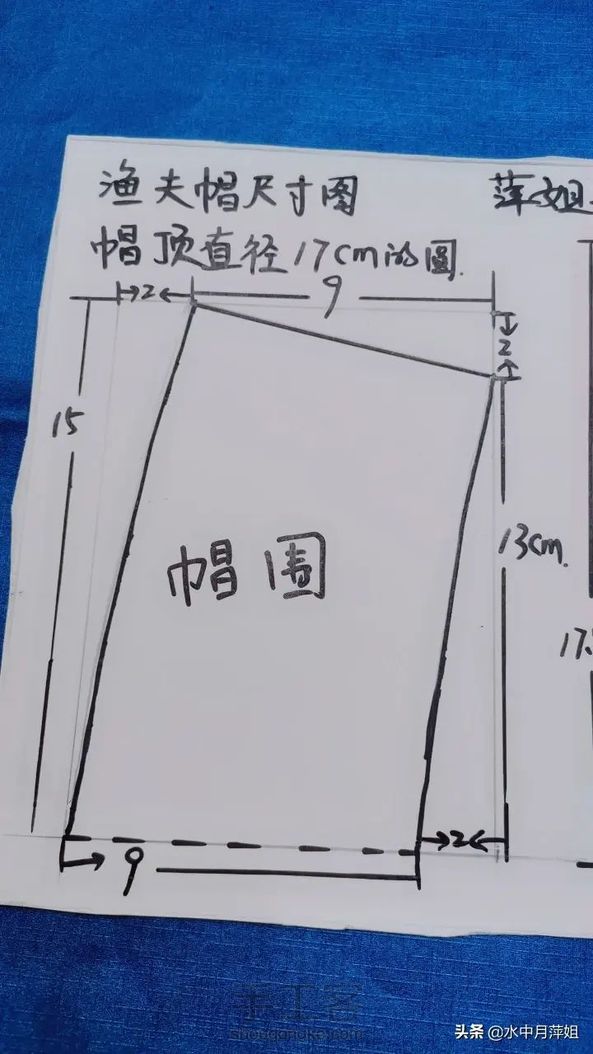 渔夫帽尺寸图
萍姐
帽顶直径17cm的圆.
2
9
2
15
帽围
13cm.
17.
2
9
手工客
shougongke.com
头条 @水中月萍姐